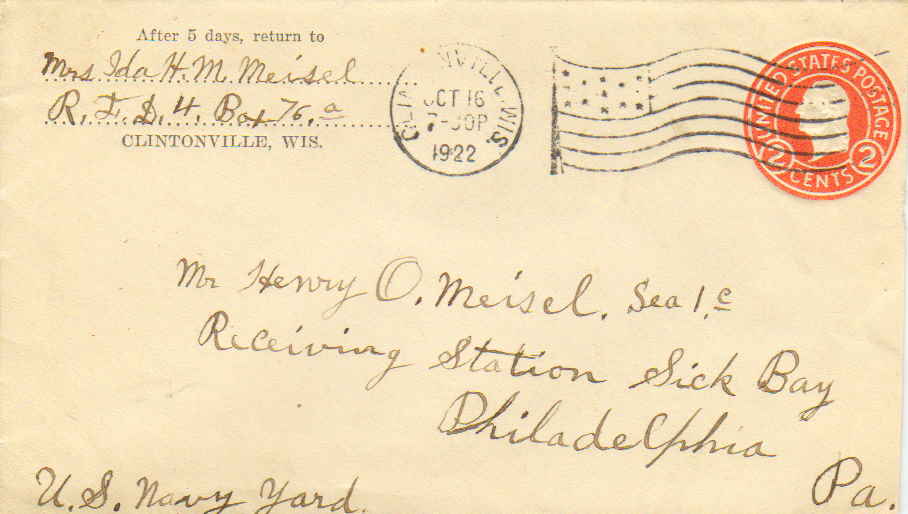 After 5 days, return to
Mrs Ida H. M. Meisel
R. F. D. 4. Box 76. a
CLINTONVILLE, WIS.
OCT 16
7-30P
1922
WIS.
UNITED STATES POSTAGE
2 CENTS 2
Mr Henry O. Meisel. Sea 1. c
Receiving Station Sick Bay
Philadelphia
Pa.
U. S. Navy Yard.